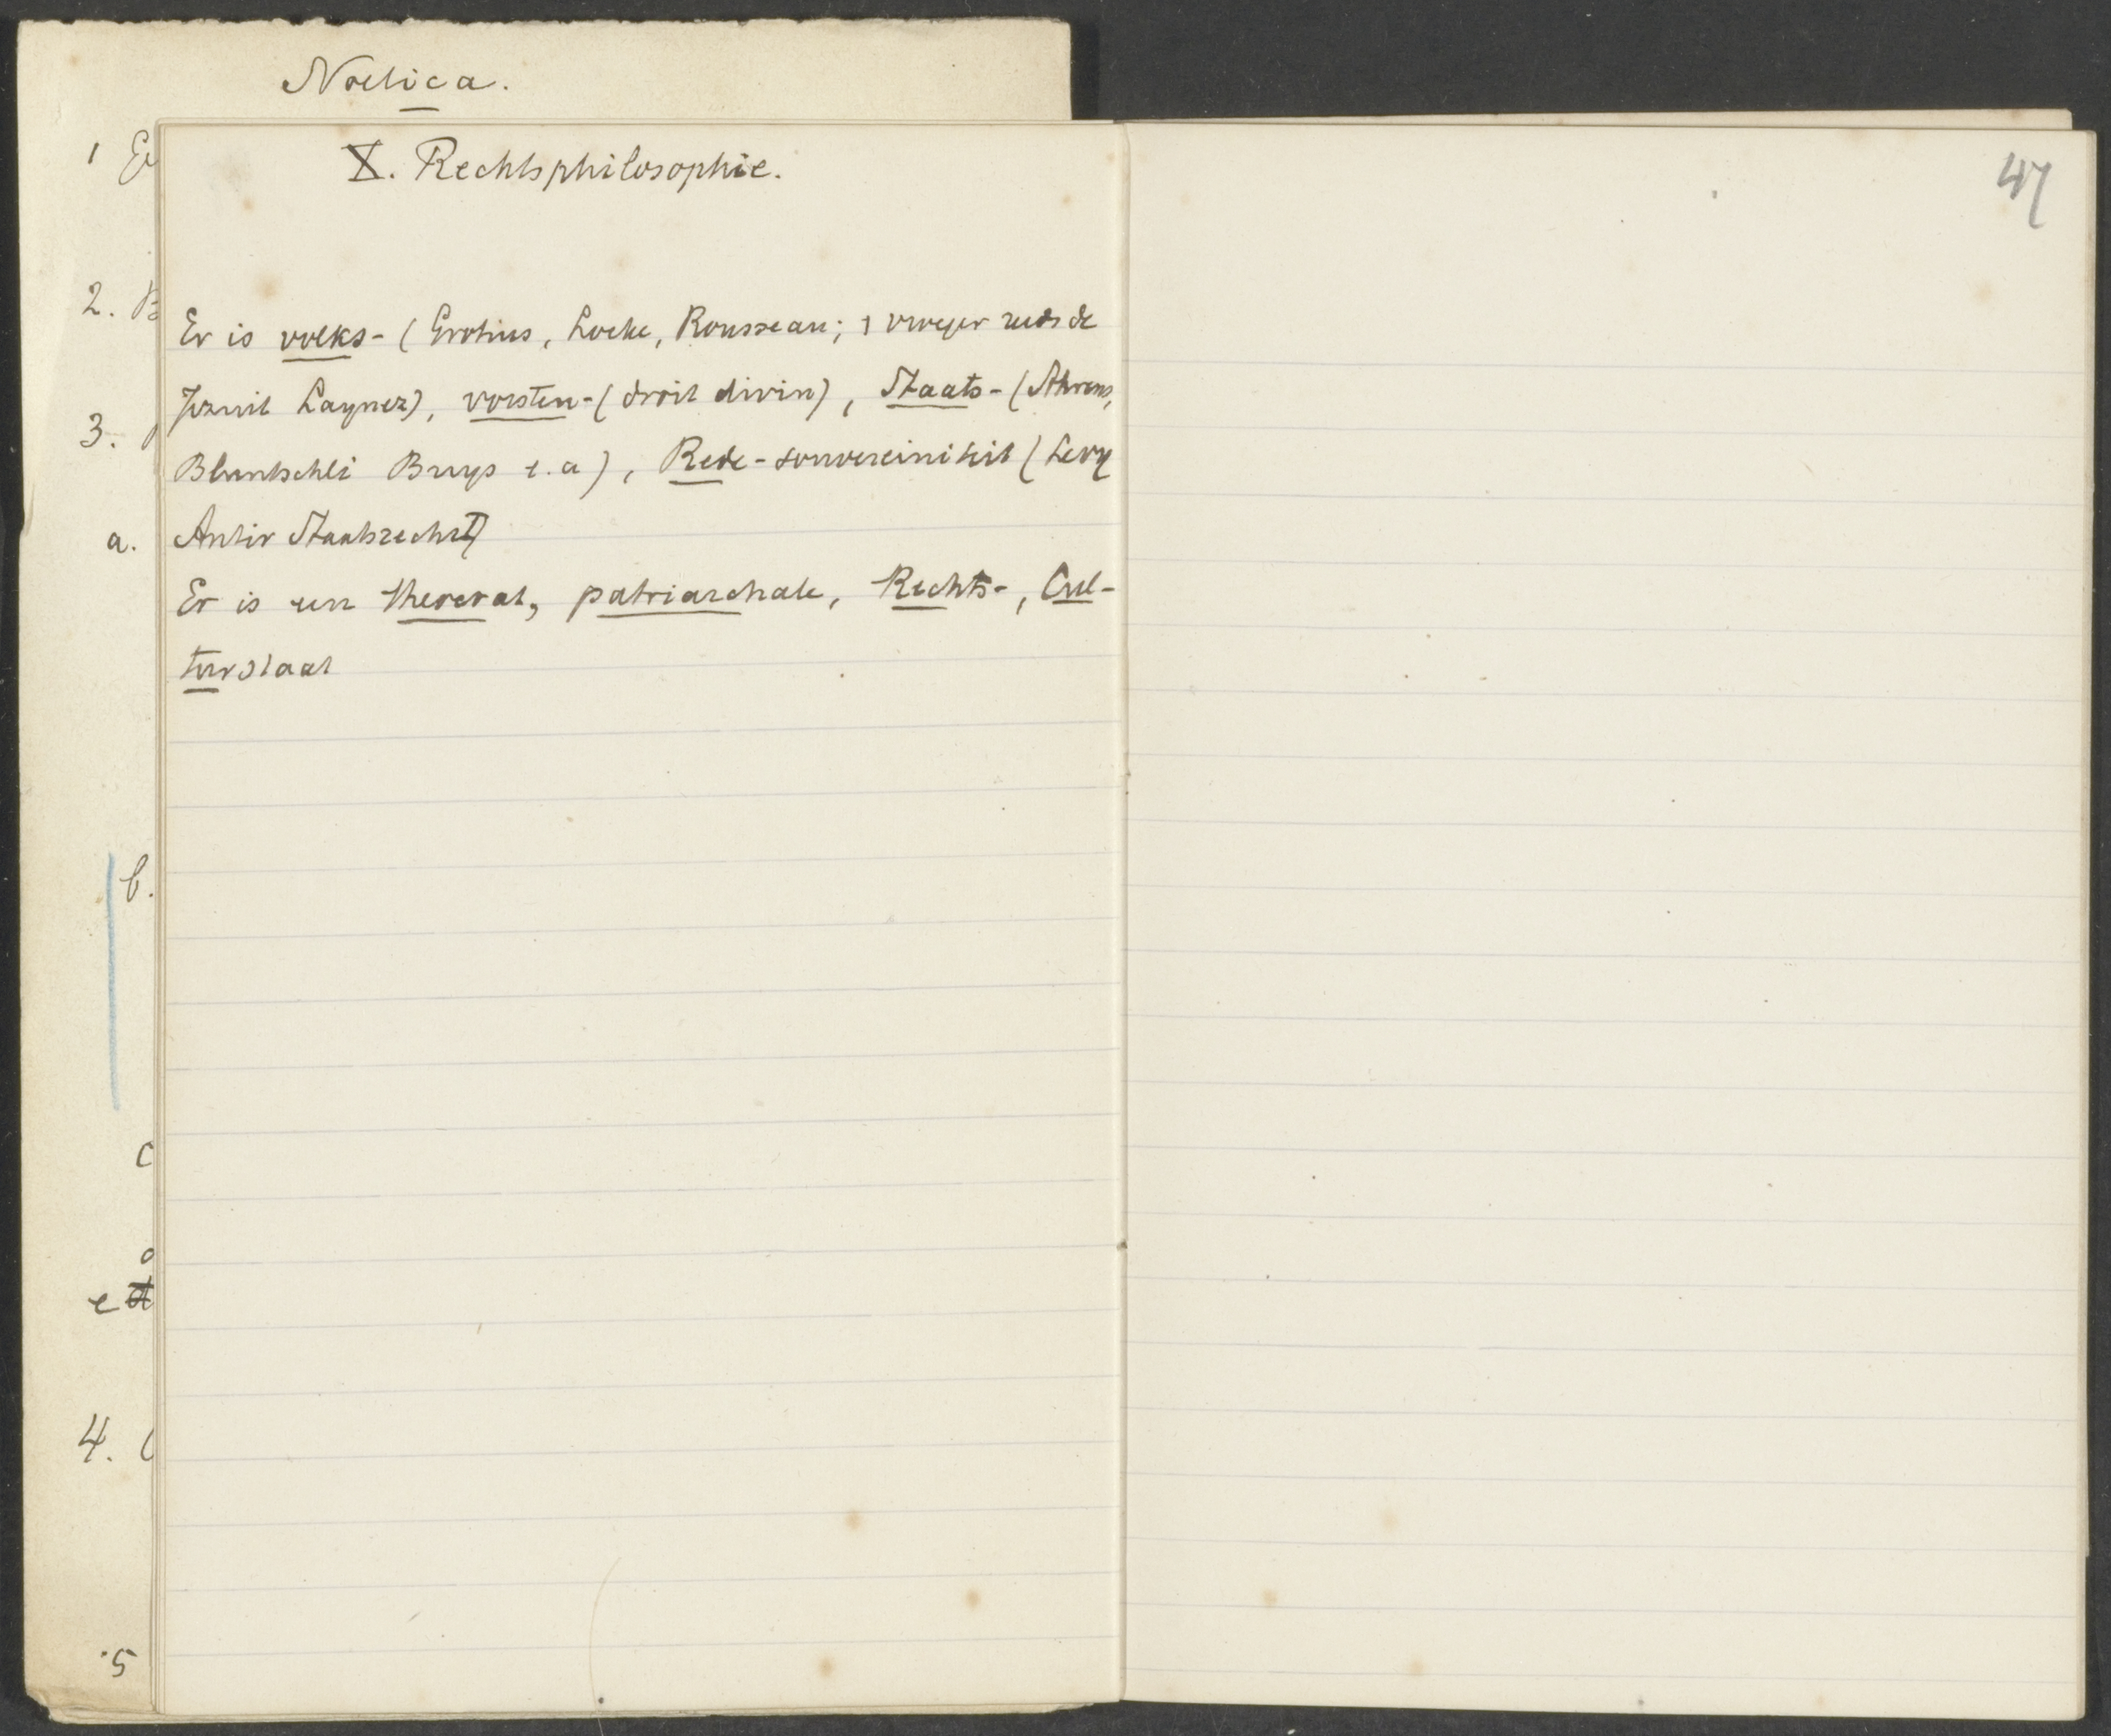 Noetica.
1
2.
3.
a.
b.
c
d
e
4.
5
X. Rechtsphilosophie.
Er is volks- (Grotius, Locke, Rousseau; vroeger reeds de
Jezuit Laynez), vorsten- (droit divin), Staats- (Ahrens,
Bluntschli Buys e.a), Rede-souvereiniteit (Levy
Antir Staatsrecht)
Er is een theocrat, patriarchale, Rechts-, Cul-
tuurstaat
47